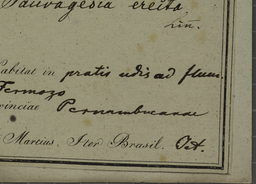 Sauvagesia erecta
Lin.
Habitat in pratis udis ad flum.
Formozo
vinciae Pernambucanae
Martius, Iter Brasil. Oct.